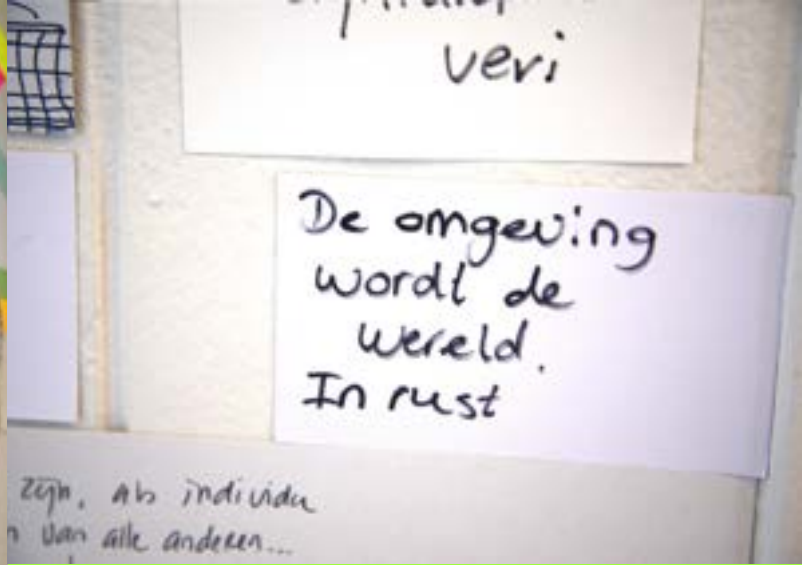 veri
De omgeving
wordt de
wereld.
In rust
zijn, als individu
van alle anderen...